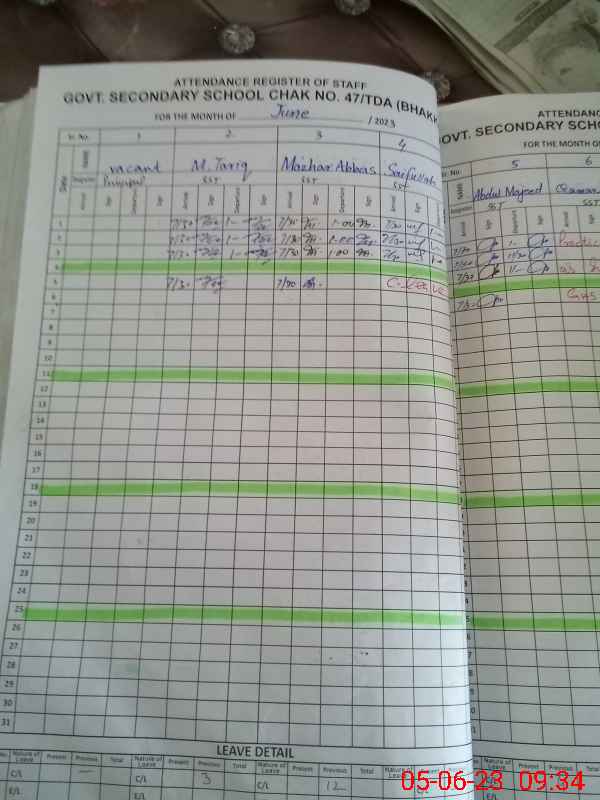 ATTENDANCE REGISTER OF STAFF
GOVT. SECONDARY SCHOOL CHAK NO. 47/TDA (BHAKK
FOR THE MONTH OF June / 2023
Sr. No. 1 2 3 4
NAME vacant M. Tariq Mazhar Abbas Saifullah
Date Designation Principal SST SST SST
Arrival Sign Departure Sign Arrival Sign Departure Sign Arrival Sign Departure Sign Arrival Sign
1 7/30 1- 7/30 1-00 7/30
2 7/30 1- 7/30 1-00 7/30
3 7/30 1- 7/30 1-00 7/30
4
5 7/30 7/30 C-Leave
6
7
8
9
10
11
12
13
14
15
16
17
18
19
20
21
22
23
24
25
26
27
28
29
30
31
LEAVE DETAIL
Nature of Leave Present Previous Total Nature of Leave Present Previous Total Nature of Leave Present Previous Total Nature of Leave
C/L - C/L 3 C/L 12
E/L E/L E/L
ATTENDANC
OVT. SECONDARY SCHO
FOR THE MONTH O
Sr. No 5 6
NAME Abdul Majeed
Designation SST SST
Arrival Sign Departure Sign
7/30
7/30
7/30
7/30
05-06-23 09:34